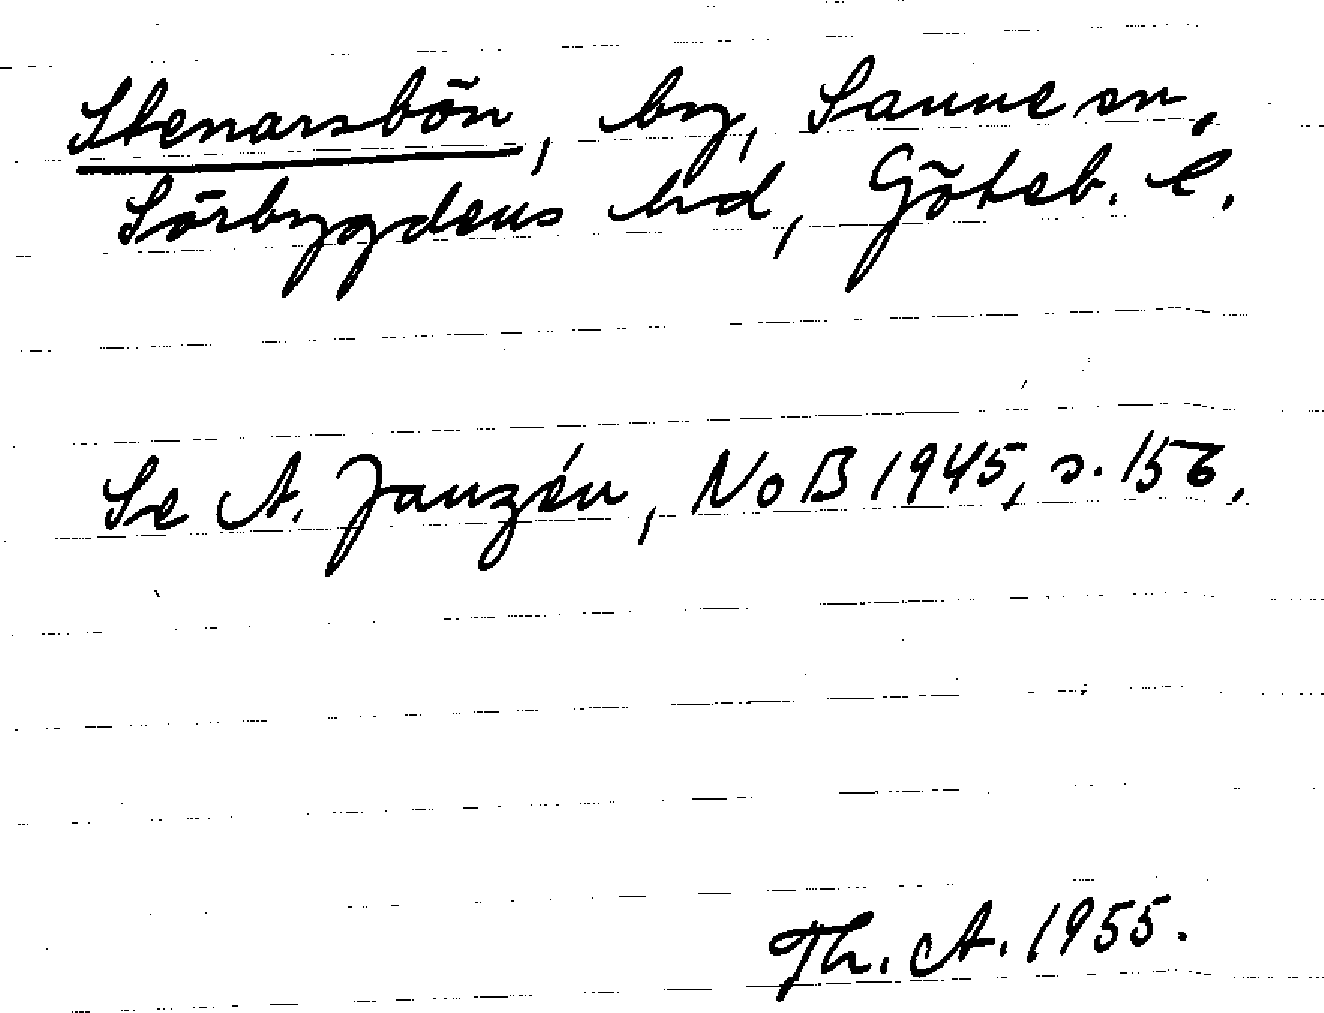 Stenarsbön, by, Sanne sn,
Sörbygdens hd, Göteb. l.
Se A. Janzén, NoB 1945, s. 156.
Th. A. 1955.